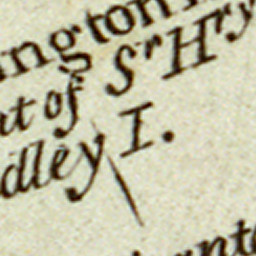 ington
at of Sr Hry
dley I.